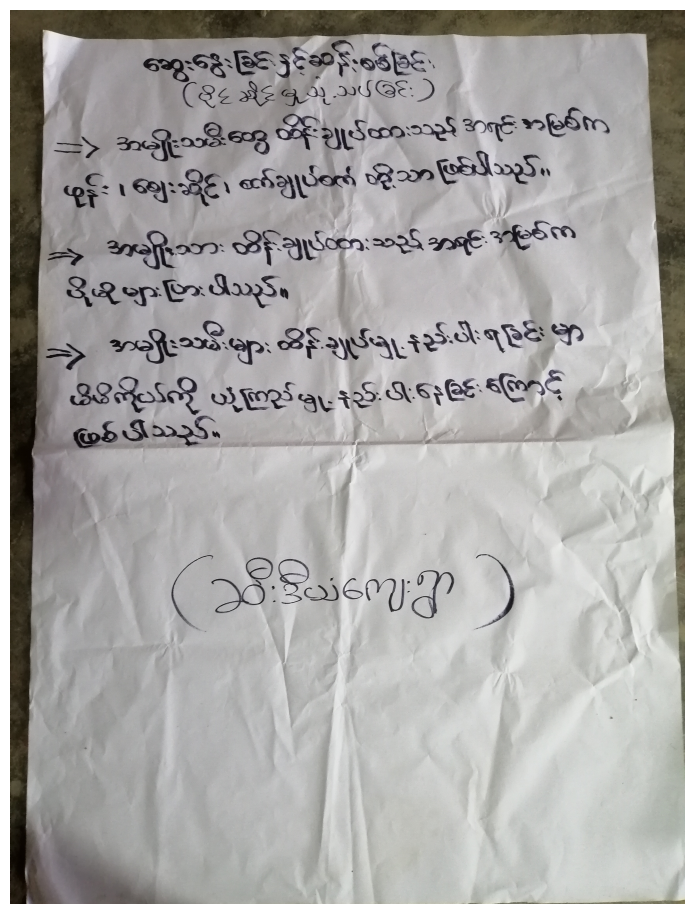 ဆွေးနွေးခြင်းနှင့်ဆန်းစစ်ခြင်း
(ပိုင်ဆိုင်မှုသုံးသပ်ခြင်း)
=> အမျိုးသမီးတွေ ထိန်းချုပ်ထားသည့် အရင်းအမြစ်က
ဖုန်း၊ ဈေးဆိုင်၊ စက်ချုပ်စက် တို့သာ ဖြစ်ပါသည်။
=> အမျိုးသား ထိန်းချုပ်ထားသည့် အရင်းအမြစ်က
ပိုမိုများပြားပါသည်။
=> အမျိုးသမီးများ ထိန်းချုပ်မှု နည်းပါးရခြင်းမှာ
မိမိကိုယ်ကို ယုံကြည်မှု နည်းပါးနေခြင်းကြောင့်
ဖြစ်ပါသည်။
(ခဝီးဒီယံကျေးရွာ)